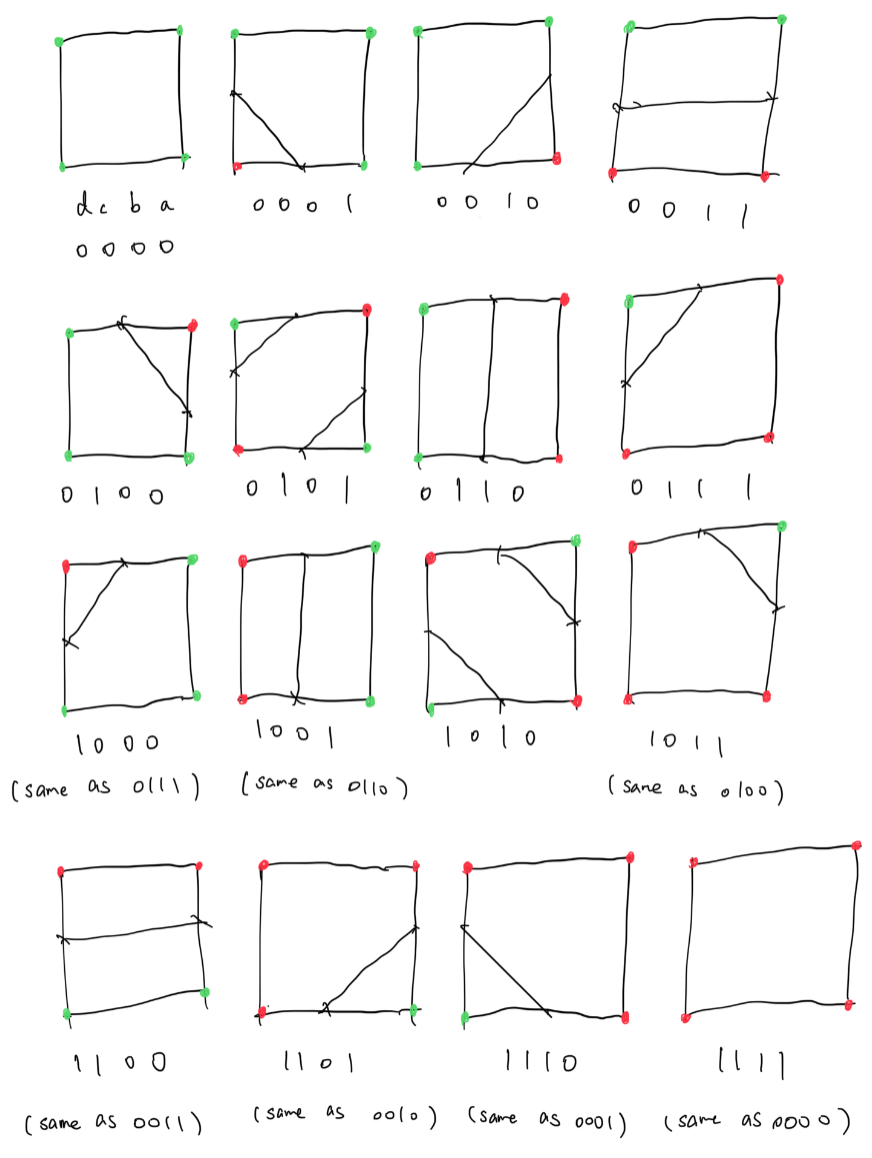 d c b a
0 0 0 0
0 0 0 1
0 0 1 0
0 0 1 1
0 1 0 0
0 1 0 1
0 1 1 0
0 1 1 1
1 0 0 0
(same as 0111)
1 0 0 1
(same as 0110)
1 0 1 0
1 0 1 1
(same as 0100)
1 1 0 0
(same as 0011)
1 1 0 1
(same as 0010)
1 1 1 0
(same as 0001)
1 1 1 1
(same as 0000)